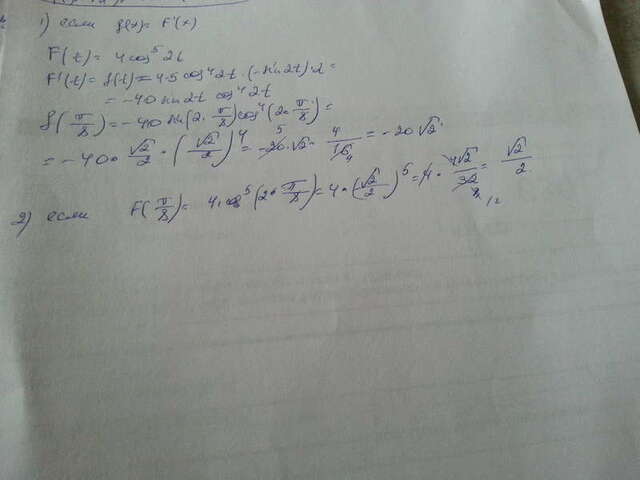 1) если f(x) = F'(x)
F(t) = 4cos⁵2t
F'(t) = f(t) = 4·5 cos⁴2t · (-sin2t)·2 =
= -40 sin2t cos⁴2t
f(π/8) = -40 sin(2·π/8) cos⁴(2·π/8) =
= -40 · √2/2 · (√2/2)⁴ = -20·√2 · 4/16 = -20√2
2) если F(π/8) = 4cos⁵(2·π/8) = 4·(√2/2)⁵ = 4 · 4√2/32 = √2/2